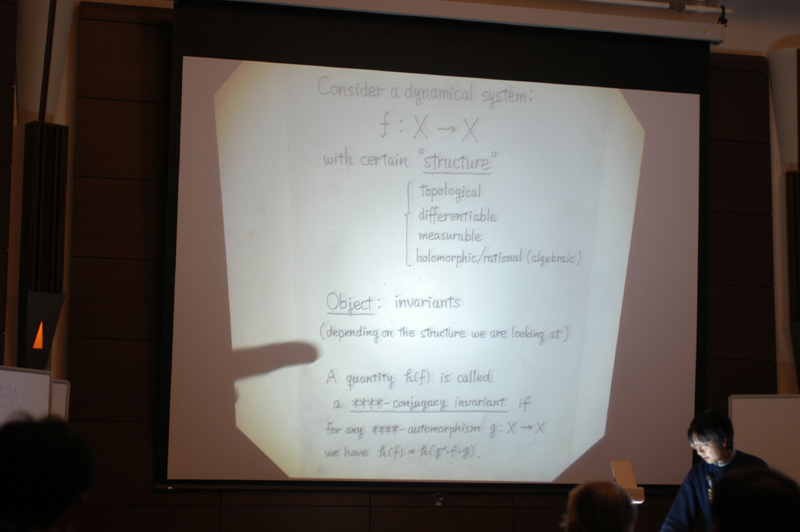 Consider a dynamical system:
f : X → X
with certain "structure"
topological
differentiable
measurable
holomorphic/rational (algebraic)
Object: invariants
(depending on the structure we are looking at)
A quantity h(f) is called
a ****-conjugacy invariant if
for any ****-automorphism g : X → X
we have h(f) = h(g⁻¹∘f∘g).